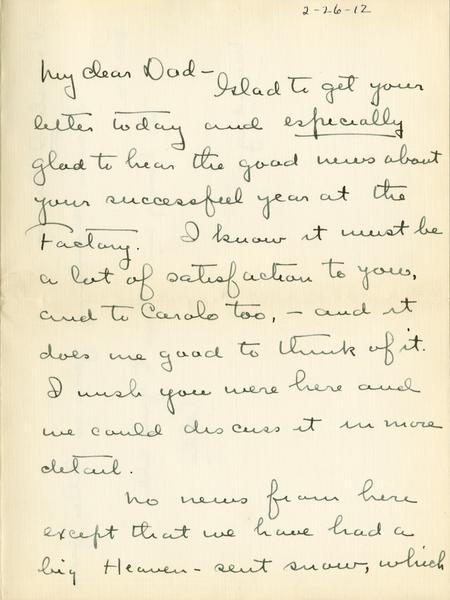 2-26-12
My dear Dad-
Glad to get your
letter today and especially
glad to hear the good news about
your successful year at the
Factory. I know it must be
a lot of satisfaction to you,
and to Carolo too, - and it
does me good to think of it.
I wish you were here and
we could discuss it in more
detail.
No news from here
except that we have had a
big Heaven-sent snow, which